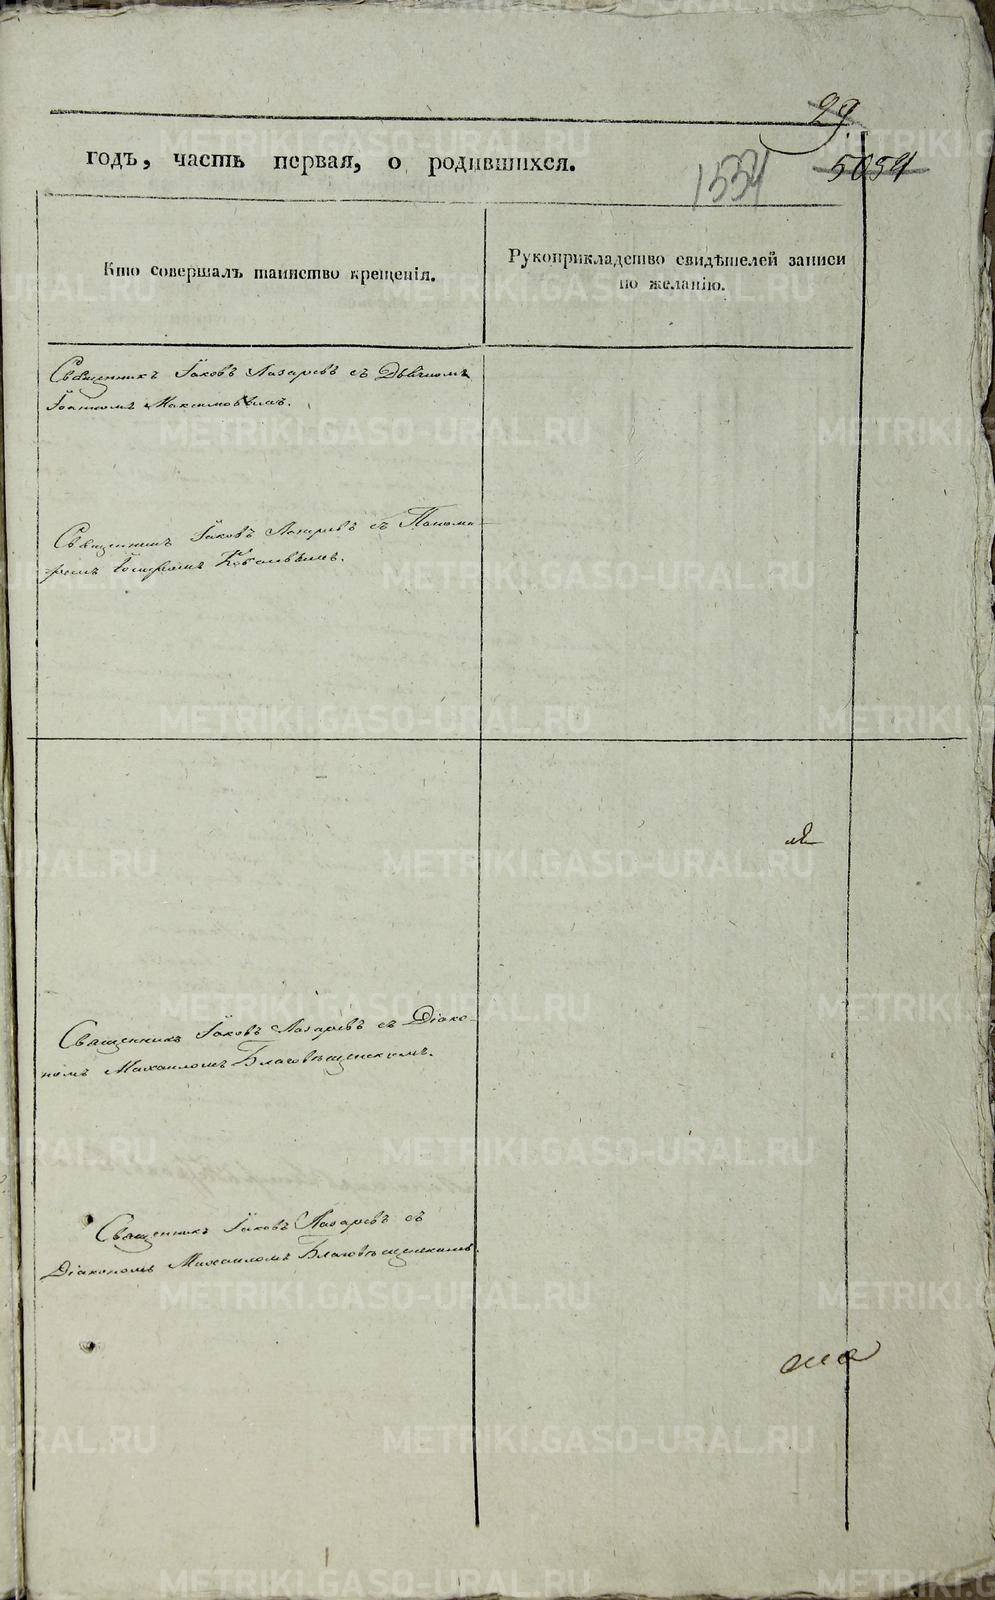 29.
годъ, часть первая, о родившихся.
1534
5054
Кто совершалъ таинство крещенія.
Рукоприкладство свидѣтелей записи
по желанію.
Священникъ Іаковъ Лазаревъ съ Дьячкомъ
Іоанномъ Максимовымъ.
Священникъ Іаковъ Лазаревъ съ Понома-
ремъ
Священникъ Іаковъ Лазаревъ съ Діако-
номъ Михаиломъ Благовѣщенскимъ.
Священникъ Іаковъ Лазаревъ съ
Діакономъ Михаиломъ Благовѣщенскимъ.
METRIKI.GASO-URAL.RU